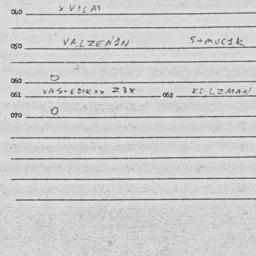 040 X VILAI
050 VALZENAN S+MUCIK
060 O
061 VAS+EDIK** Z3X 062 KO,LZMAN
070 O